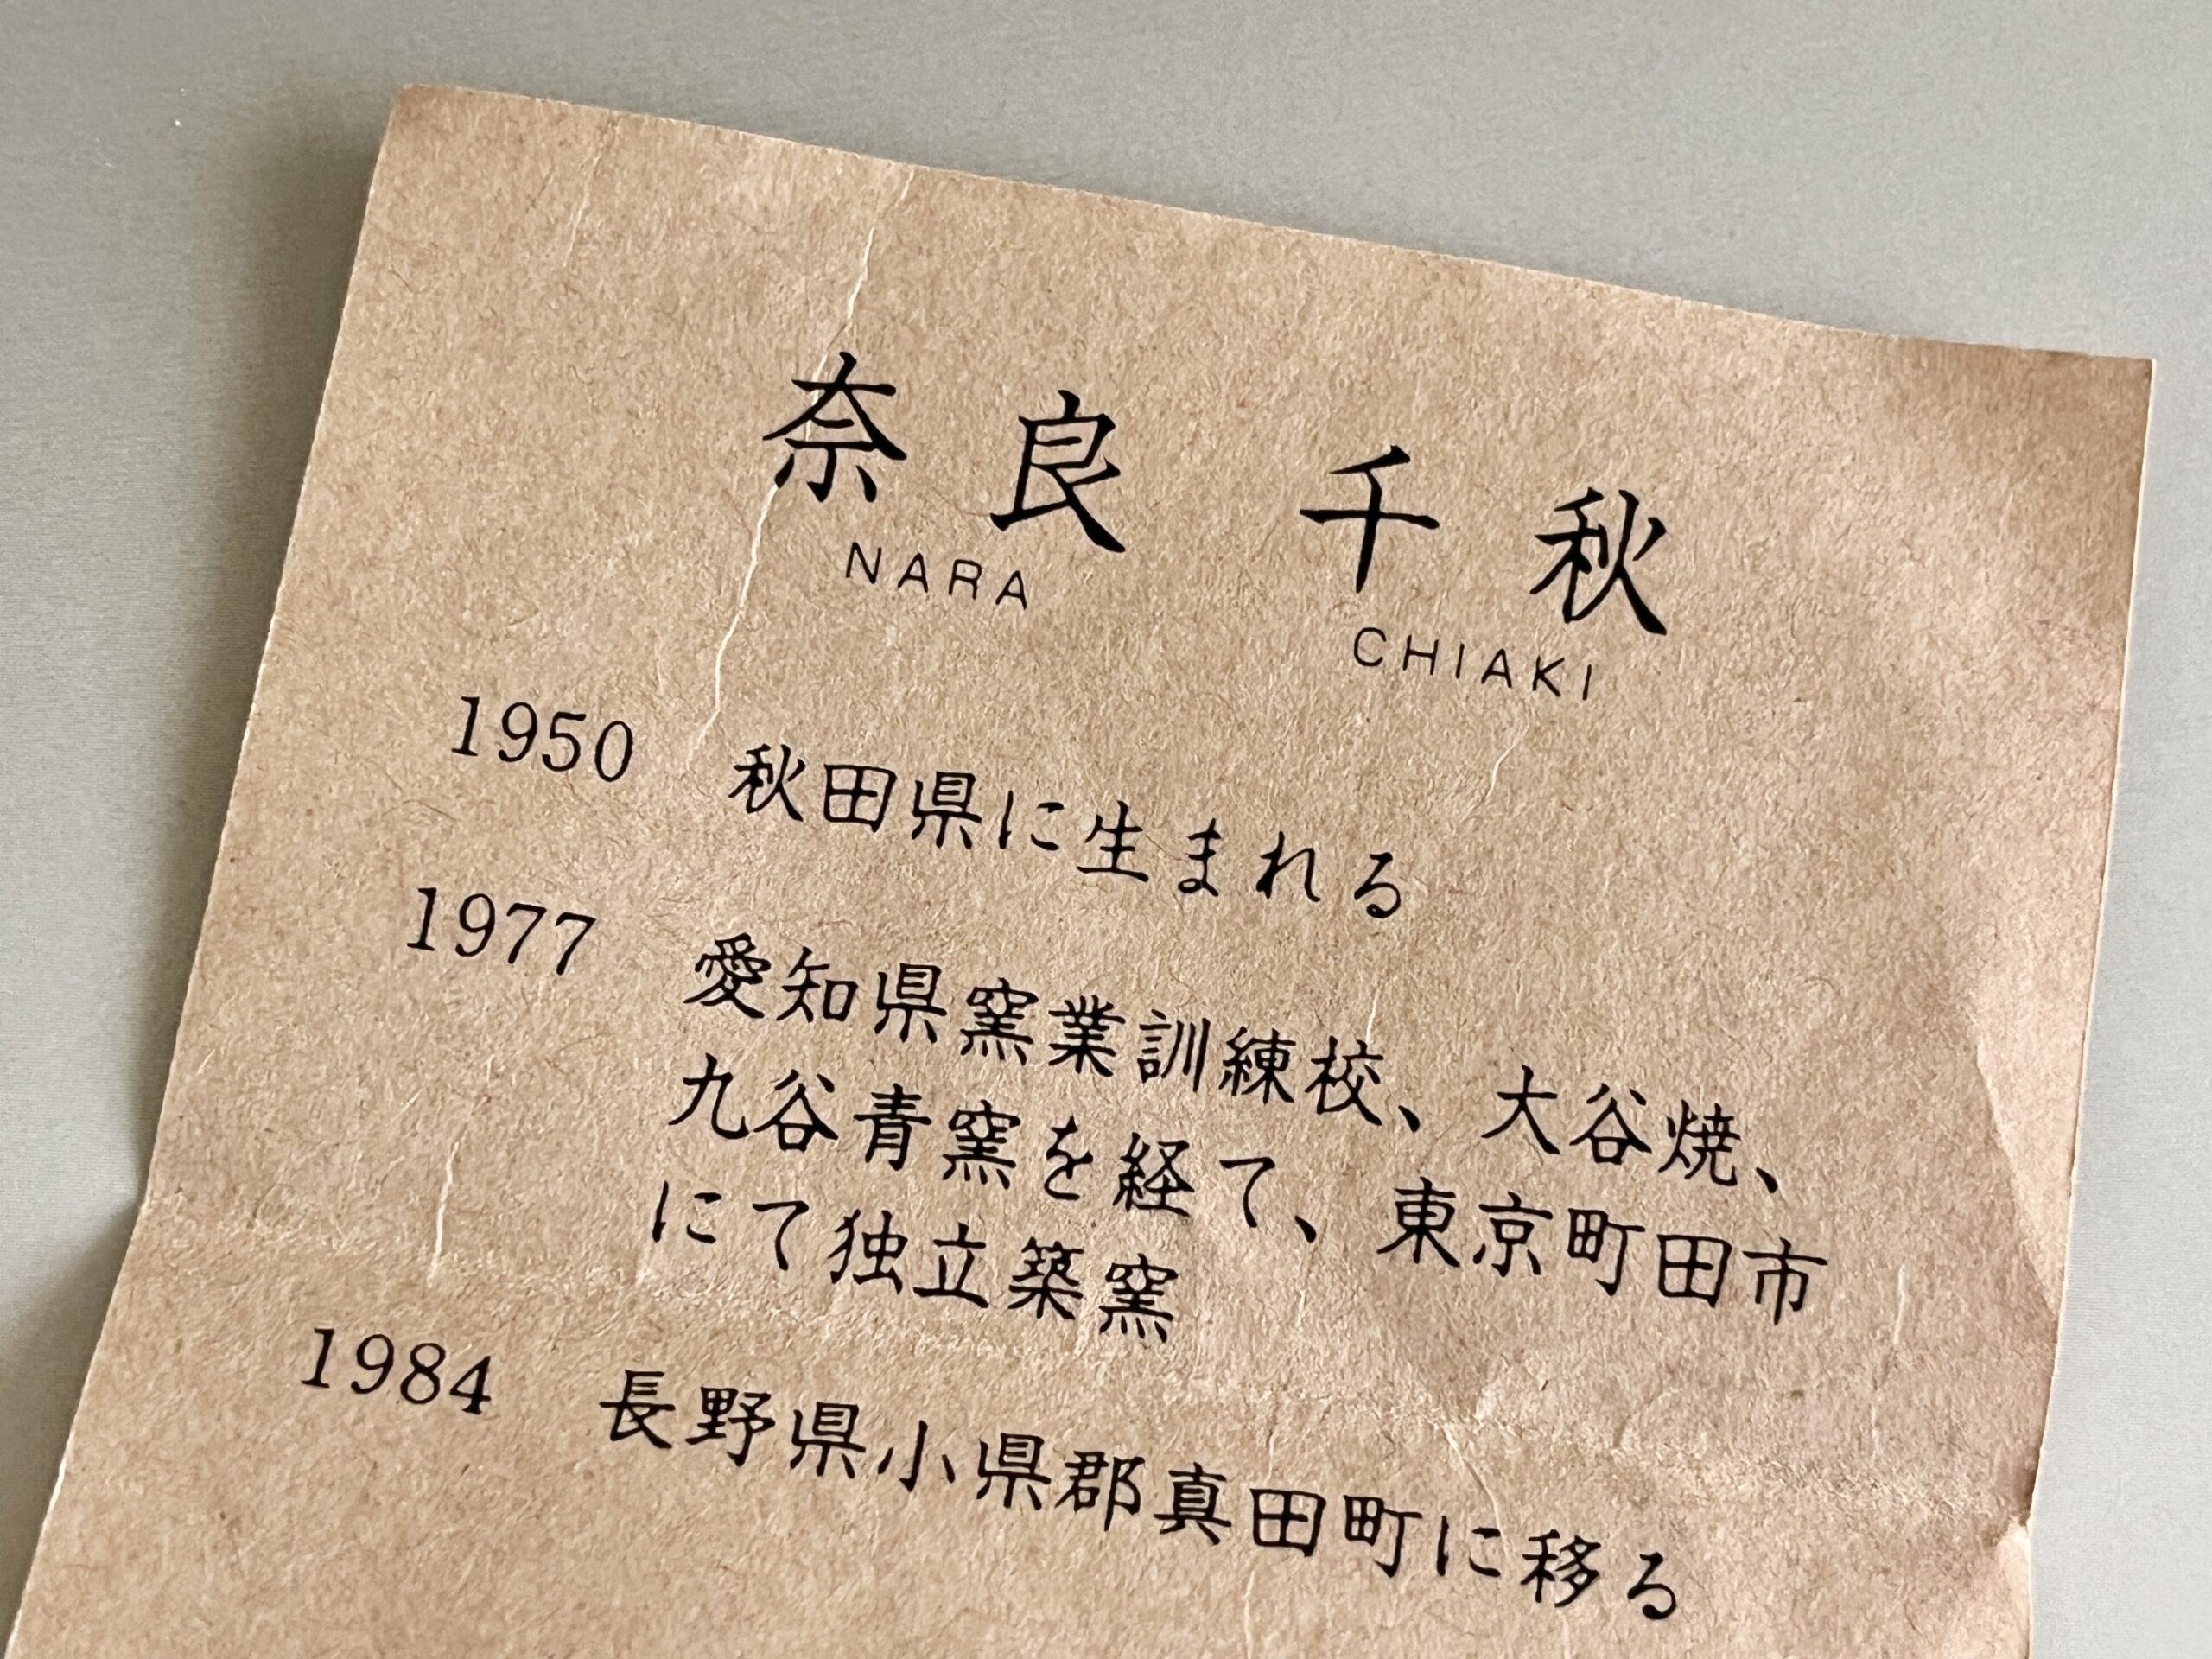 奈良 千秋
NARA CHIAKI
1950 秋田県に生まれる
1977 愛知県窯業訓練校、大谷焼、
九谷青窯を経て、東京町田市
にて独立築窯
1984 長野県小県郡真田町に移る